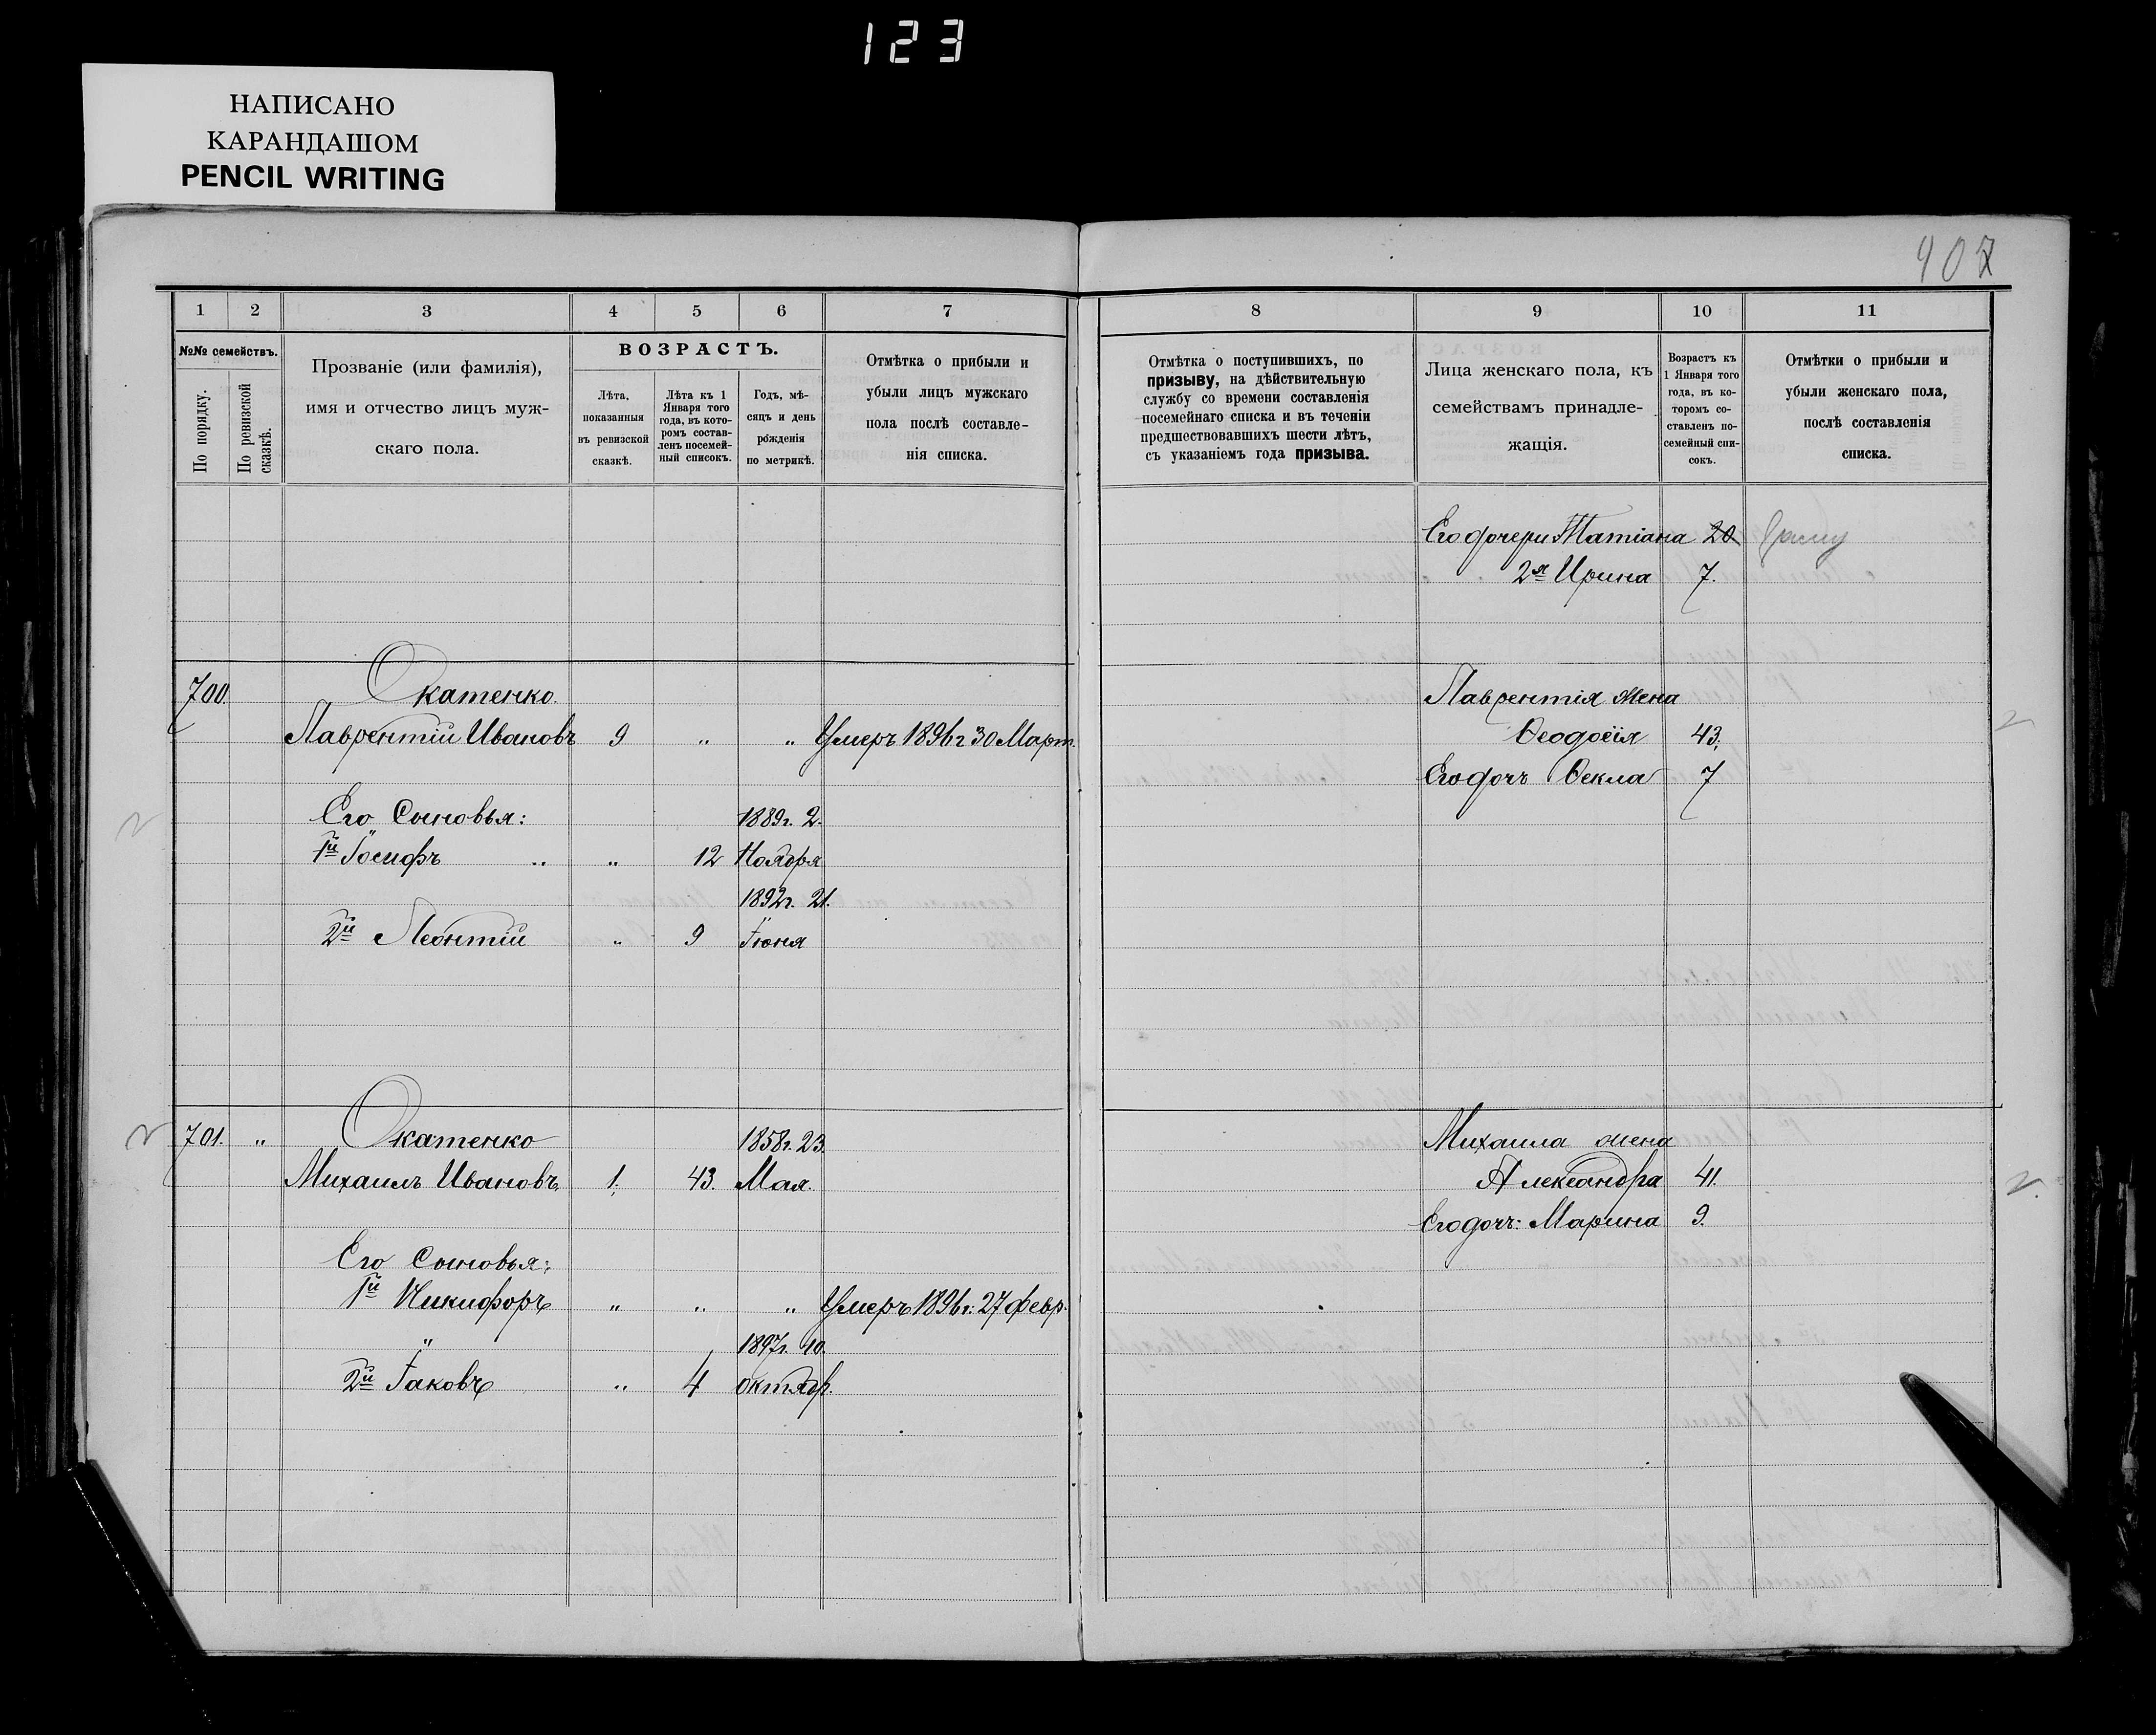 123
НАПИСАНО
КАРАНДАШОМ
PENCIL WRITING
407
1 2 3 4 5 6 7 8 9 10 11
№№ семействъ.
По порядку.
По ревизской сказкѣ.
Прозваніе (или фамилія),
имя и отчество лицъ муж-
скаго пола.
ВОЗРАСТЪ.
Лѣта,
показанныя
въ ревизской
сказкѣ.
Лѣта къ 1
Января того
года, въ кото-
ромъ состав-
ленъ посемей-
ный списокъ.
Годъ, мѣ-
сяцъ и день
рожденія
по метрикѣ.
Отмѣтка о прибыли и
убыли лицъ мужскаго
пола послѣ составле-
нія списка.
Отмѣтка о поступившихъ, по
призыву, на дѣйствительную
службу со времени составленія
посемейнаго списка и въ теченіи
предшествовавшихъ шести лѣтъ,
съ указаніемъ года призыва.
Лица женскаго пола, къ
семействамъ принадле-
жащія.
Возрастъ къ
1 Января того
года, въ ко-
торомъ со-
ставленъ по-
семейный спи-
сокъ.
Отмѣтки о прибыли и
убыли женскаго пола,
послѣ составленія
списка.
Его дочери Татіана 20
2я Ирина 7.
700. Окатенко. Лаврентія жена
Лаврентій Ивановъ 9 " " Умеръ 1896 г 30 Март. Ѳеодосія 43.
Его дочь Ѳекла 7
Его Сыновья: 1889г. 2.
1й Іосифъ " " 12 Ноября
1892г. 21.
2й Леонтій " 9 Іюня
701. " Окатенко 1858г. 23. Михаила жена
Михаилъ Ивановъ, 1. 43. Мая. Александра 41.
Его дочь: Марина 9.
Его Сыновья:
1й Никифоръ " " " Умеръ 1896г. 27 февр.
1897г. 10.
2й Іаковъ " 4 октябр.